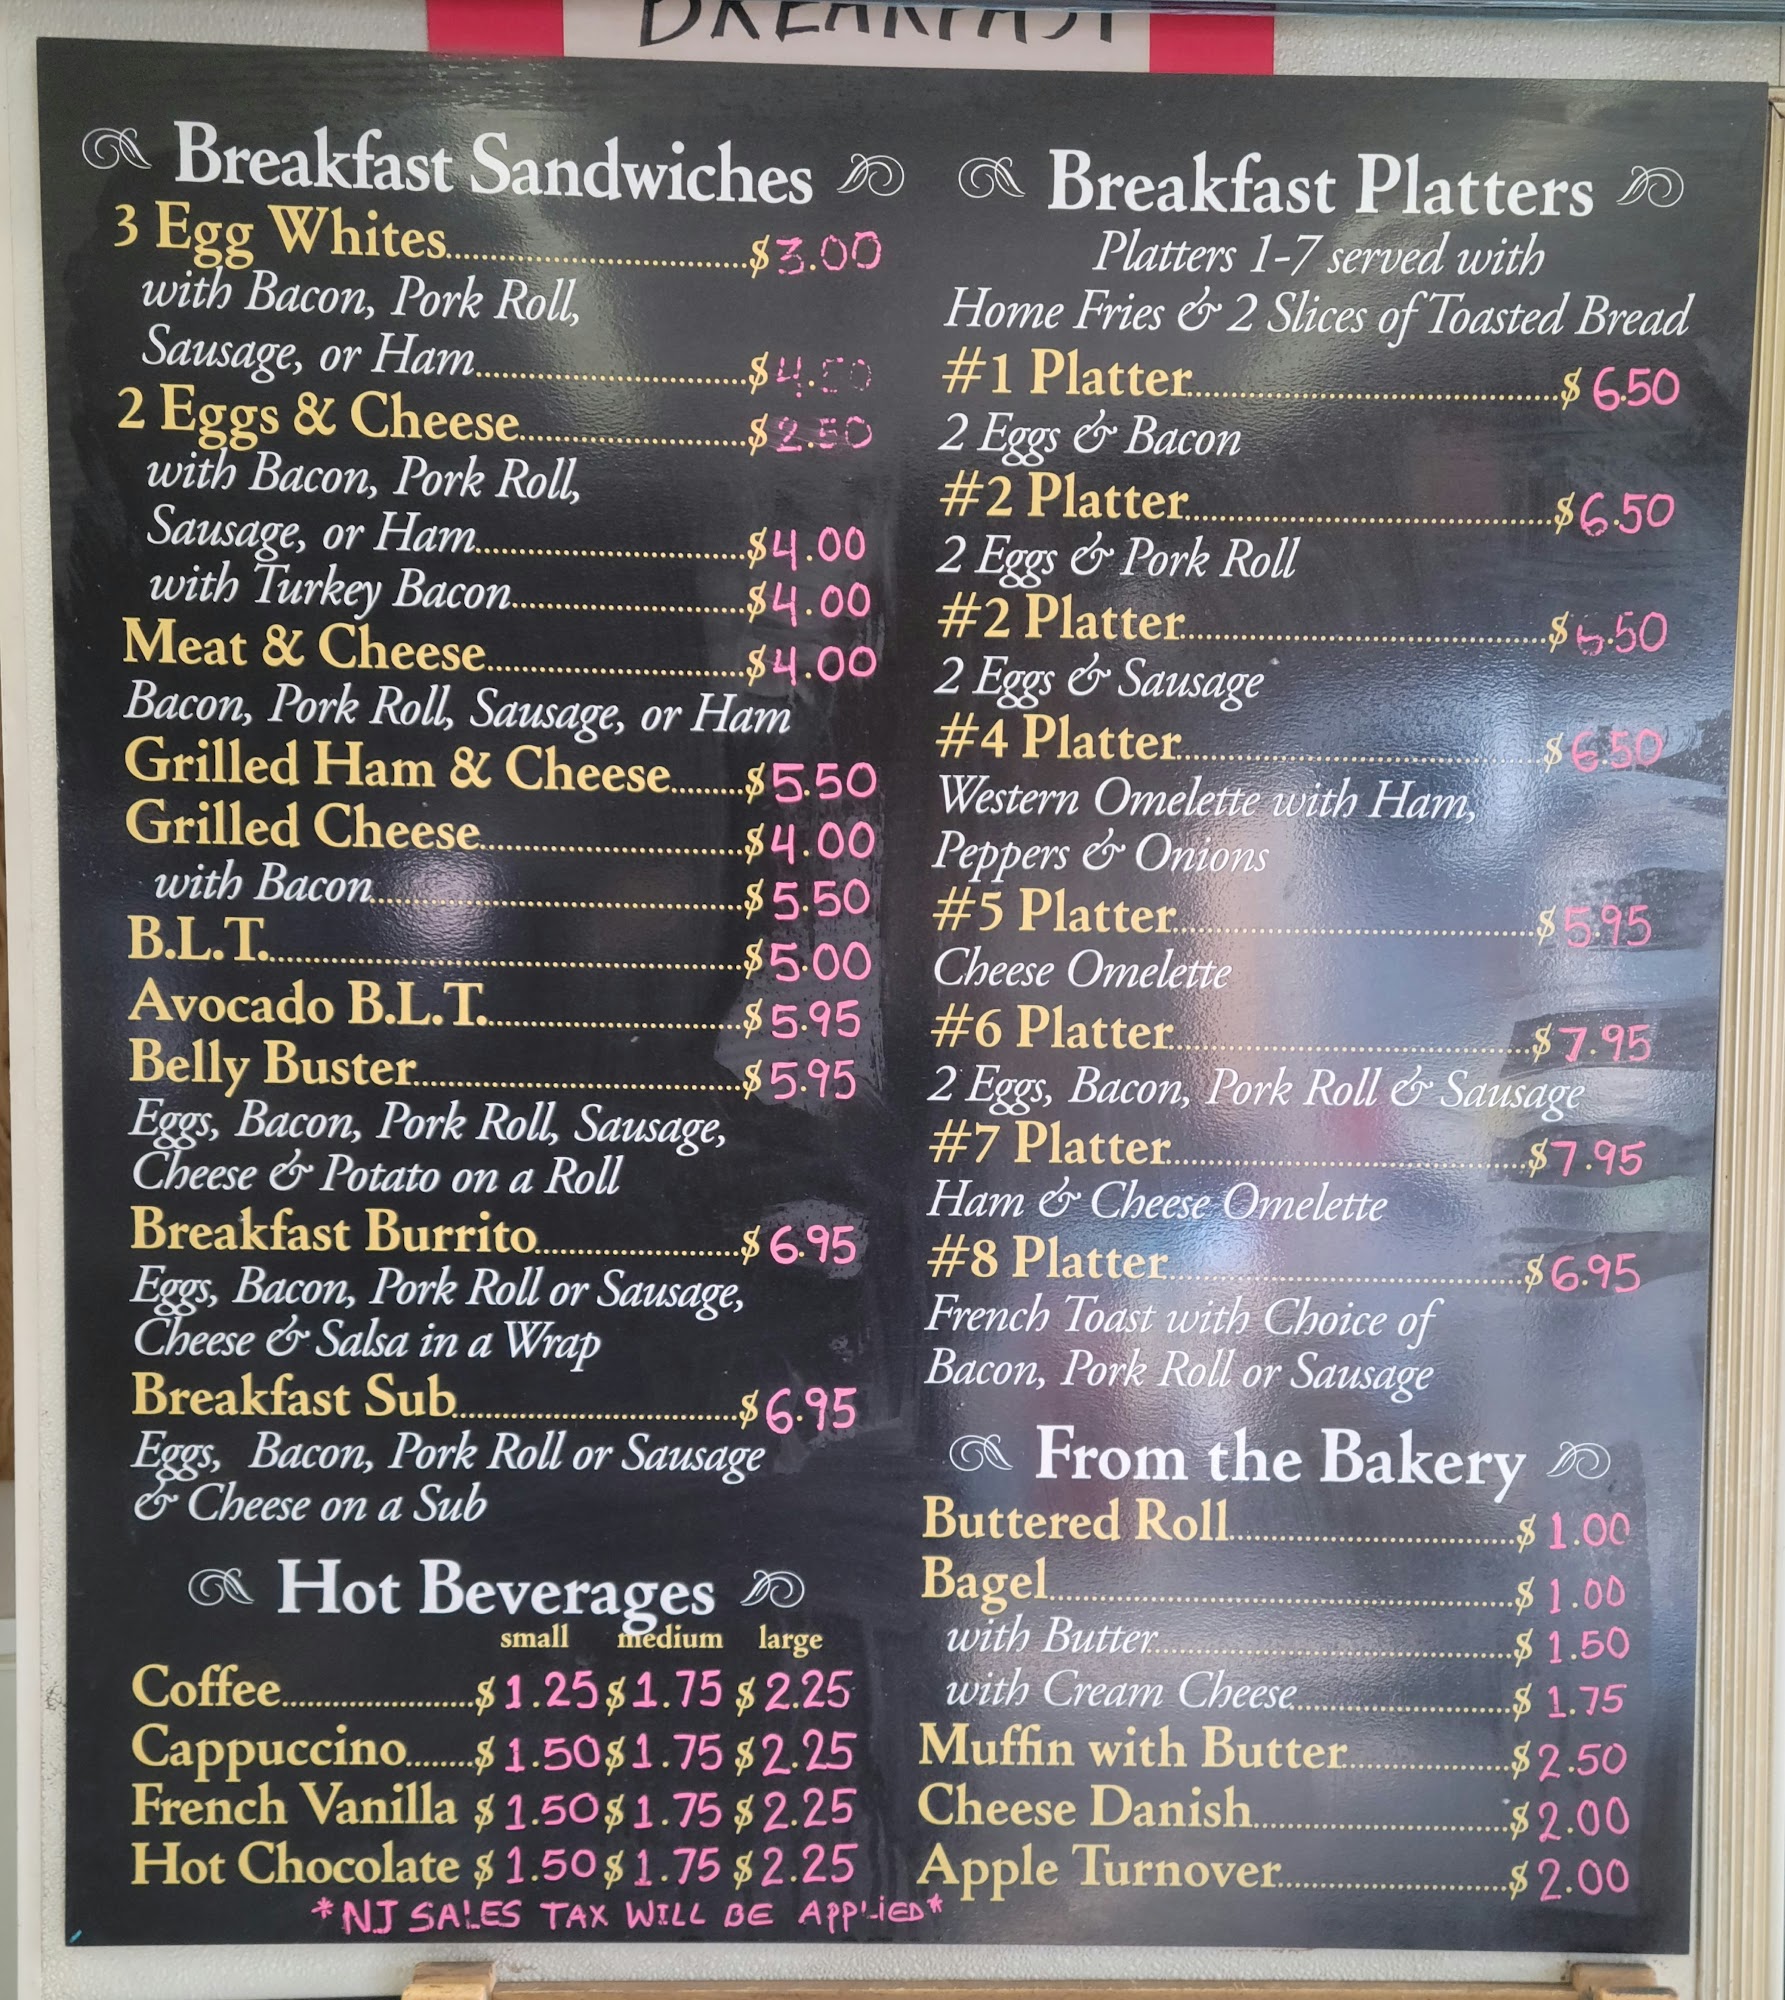 BREAKFAST
Breakfast Sandwiches
3 Egg Whites $3.00
with Bacon, Pork Roll,
Sausage, or Ham $4.50
2 Eggs & Cheese $2.50
with Bacon, Pork Roll,
Sausage, or Ham $4.00
with Turkey Bacon $4.00
Meat & Cheese $4.00
Bacon, Pork Roll, Sausage, or Ham
Grilled Ham & Cheese $5.50
Grilled Cheese $4.00
with Bacon $5.50
B.L.T. $5.00
Avocado B.L.T. $5.95
Belly Buster $5.95
Eggs, Bacon, Pork Roll, Sausage,
Cheese & Potato on a Roll
Breakfast Burrito $6.95
Eggs, Bacon, Pork Roll or Sausage,
Cheese & Salsa in a Wrap
Breakfast Sub $6.95
Eggs, Bacon, Pork Roll or Sausage
& Cheese on a Sub
Hot Beverages
small medium large
Coffee $1.25 $1.75 $2.25
Cappuccino $1.50 $1.75 $2.25
French Vanilla $1.50 $1.75 $2.25
Hot Chocolate $1.50 $1.75 $2.25
*NJ SALES TAX WILL BE APPLiED*
Breakfast Platters
Platters 1-7 served with
Home Fries & 2 Slices of Toasted Bread
#1 Platter $6.50
2 Eggs & Bacon
#2 Platter $6.50
2 Eggs & Pork Roll
#2 Platter $6.50
2 Eggs & Sausage
#4 Platter $6.50
Western Omelette with Ham,
Peppers & Onions
#5 Platter $5.95
Cheese Omelette
#6 Platter $7.95
2 Eggs, Bacon, Pork Roll & Sausage
#7 Platter $7.95
Ham & Cheese Omelette
#8 Platter $6.95
French Toast with Choice of
Bacon, Pork Roll or Sausage
From the Bakery
Buttered Roll $1.00
Bagel $1.00
with Butter $1.50
with Cream Cheese $1.75
Muffin with Butter $2.50
Cheese Danish $2.00
Apple Turnover $2.00